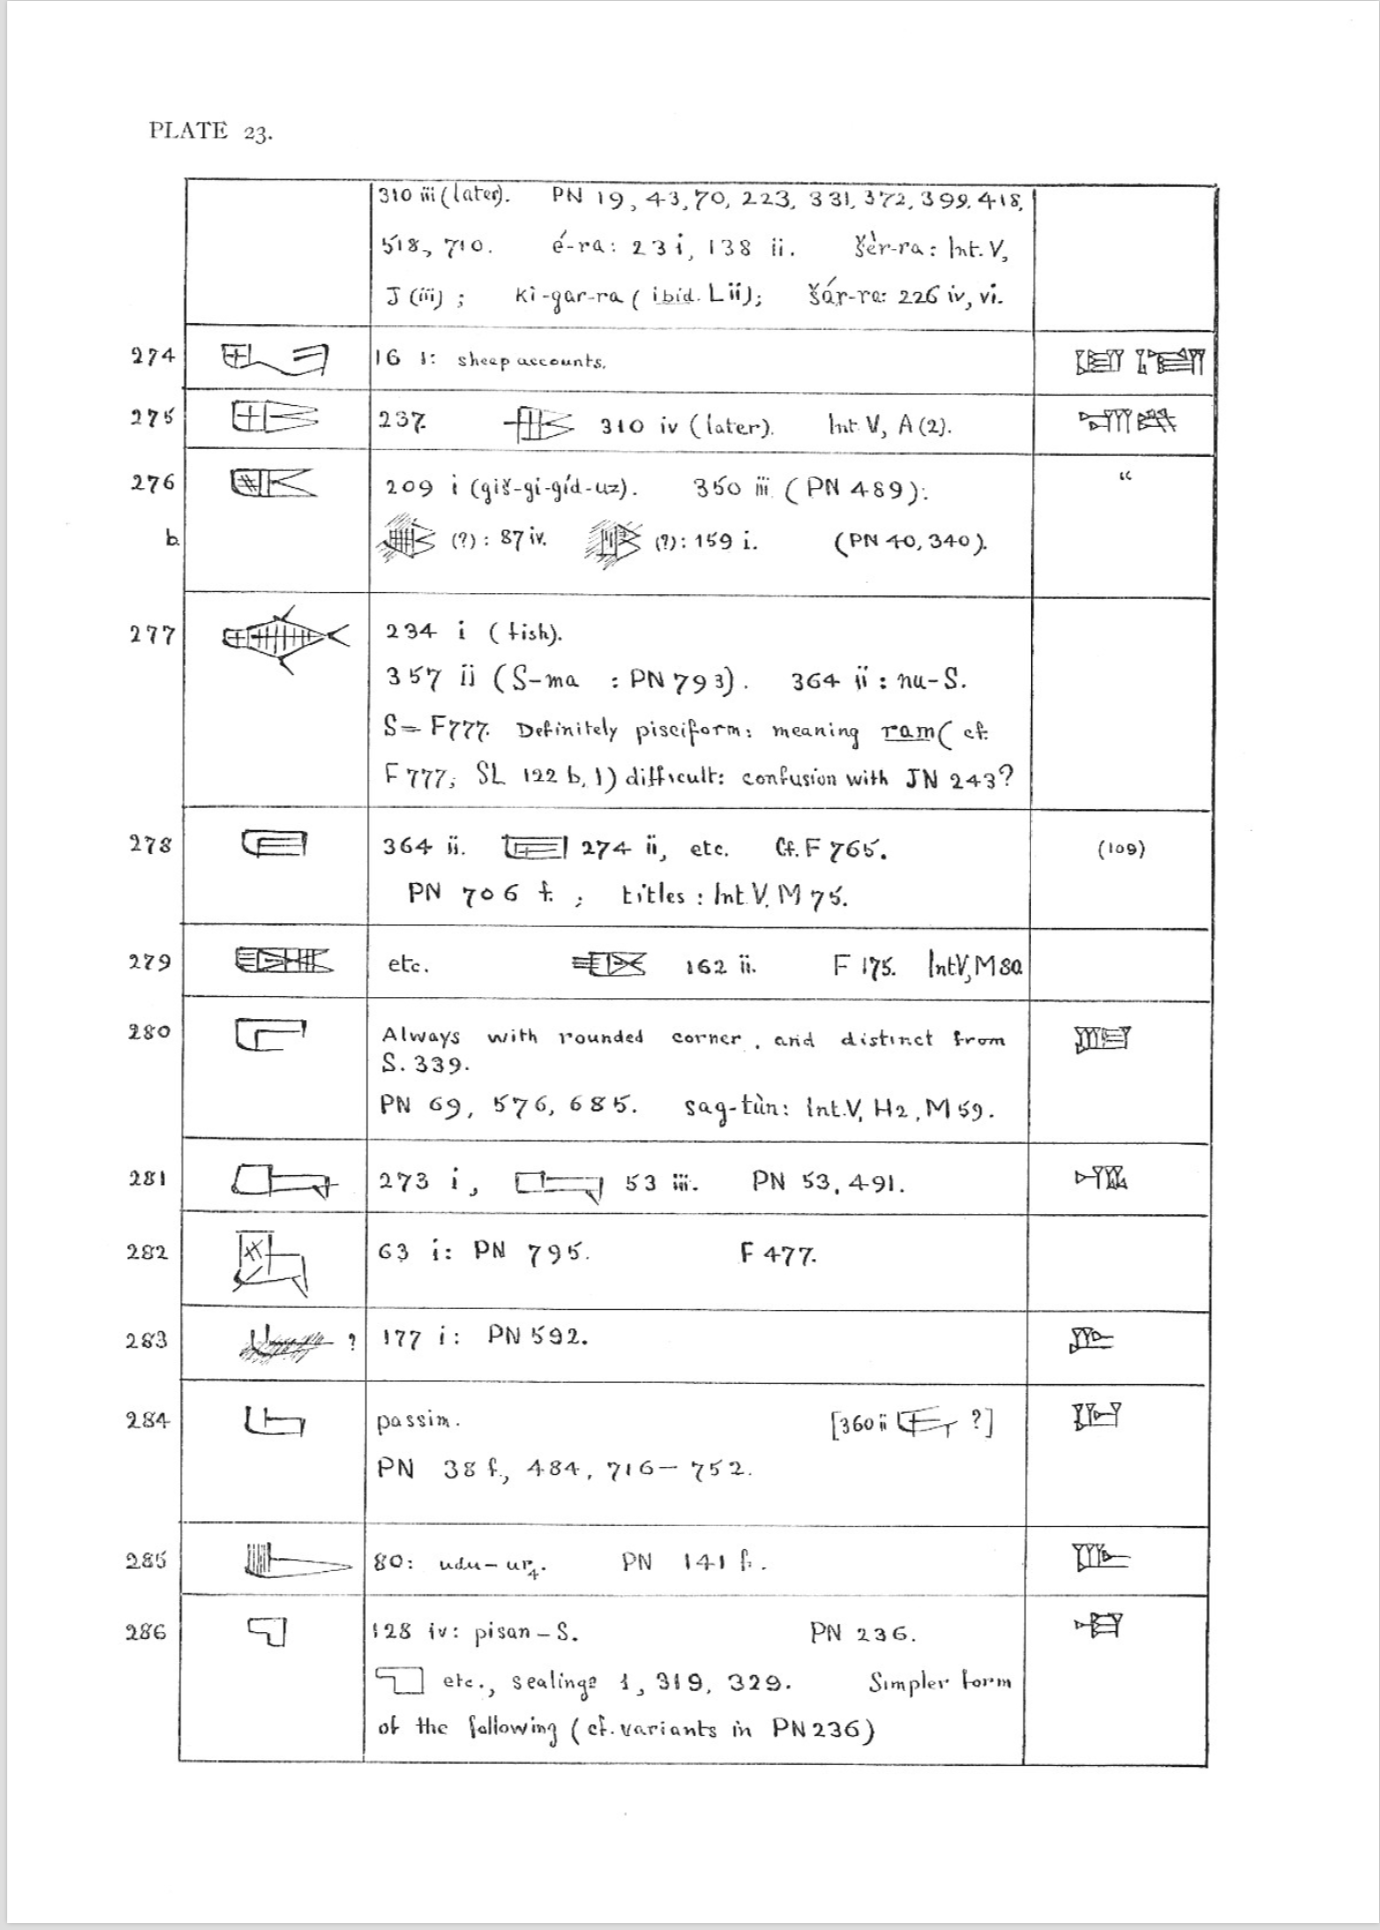 PLATE 23.
310 iii (later). PN 19, 43, 70, 223, 331, 372, 399, 418,
518, 710. é-ra: 23 i, 138 ii. šèr-ra: Int. V,
J (iii); ki-gar-ra (ibid. L ii); šár-ra: 226 iv, vi.
274 16 1: sheep accounts.
275 237. 310 iv (later). Int V, A (2).
276 209 i (giš-gi-gíd-uz). 350 iii (PN 489): “
b. (?): 87 iv. (?): 159 i. (PN 40, 340).
277 234 i (fish).
357 ii (S-ma : PN 793). 364 ii: nu-S.
S = F777. Definitely pisciform: meaning ram (cf.
F 777, SL 122 b, 1) difficult: confusion with JN 243?
278 364 ii. 274 ii, etc. Cf. F 765. (109)
PN 706 f. ; titles: Int V, M 75.
279 etc. 162 ii. F 175. Int V, M 80
280 Always with rounded corner, and distinct from
S. 339.
PN 69, 576, 685. sag-tùn: Int. V, H2, M 59.
281 273 i, 53 iii. PN 53, 491.
282 63 i: PN 795. F 477.
283 ? 177 i: PN 592.
284 passim. [360 ii ?]
PN 38 f., 484, 716–752.
285 80: udu-ur₄. PN 141 f.
286 128 iv: pisan-S. PN 236.
etc., sealings 1, 319, 329. Simpler form
of the following (cf. variants in PN 236)